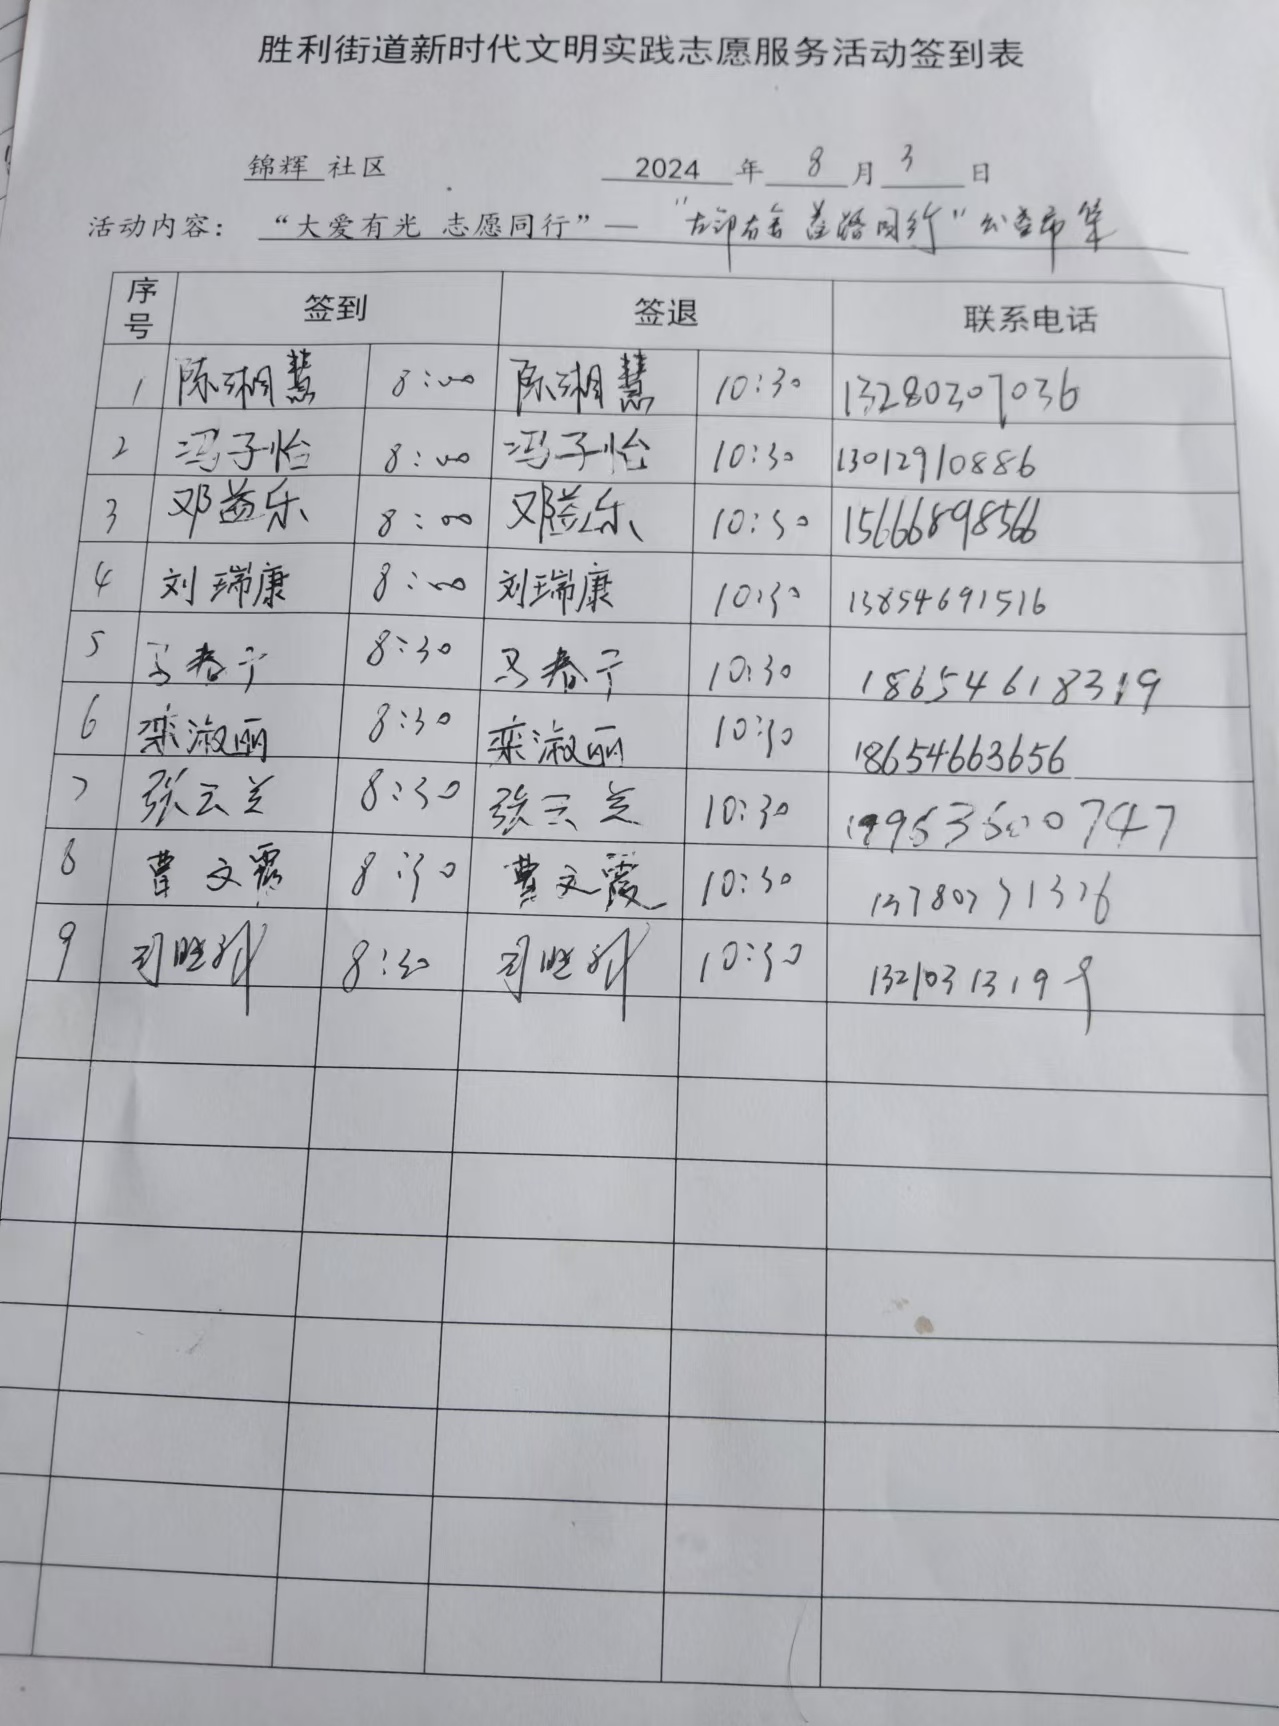 胜利街道新时代文明实践志愿服务活动签到表
锦辉 社区 2024 年 8 月 3 日
活动内容： “大爱有光 志愿同行”— “左邻右舍 益路同行”公益市集
序号 签到 签退 联系电话
1 陈湘慧 8:00 陈湘慧 10:30 13280307036
2 冯子怡 8:00 冯子怡 10:30 13012910886
3 邓益乐 8:00 邓益乐 10:30 15666898566
4 刘瑞康 8:00 刘瑞康 10:30 13854691516
5 马春宁 8:30 马春宁 10:30 18654618319
6 栾淑丽 8:30 栾淑丽 10:30 18654663656
7 张云兰 8:30 张云兰 10:30
8 曹文霞 8:30 曹文霞 10:30
9 8:30 10:30